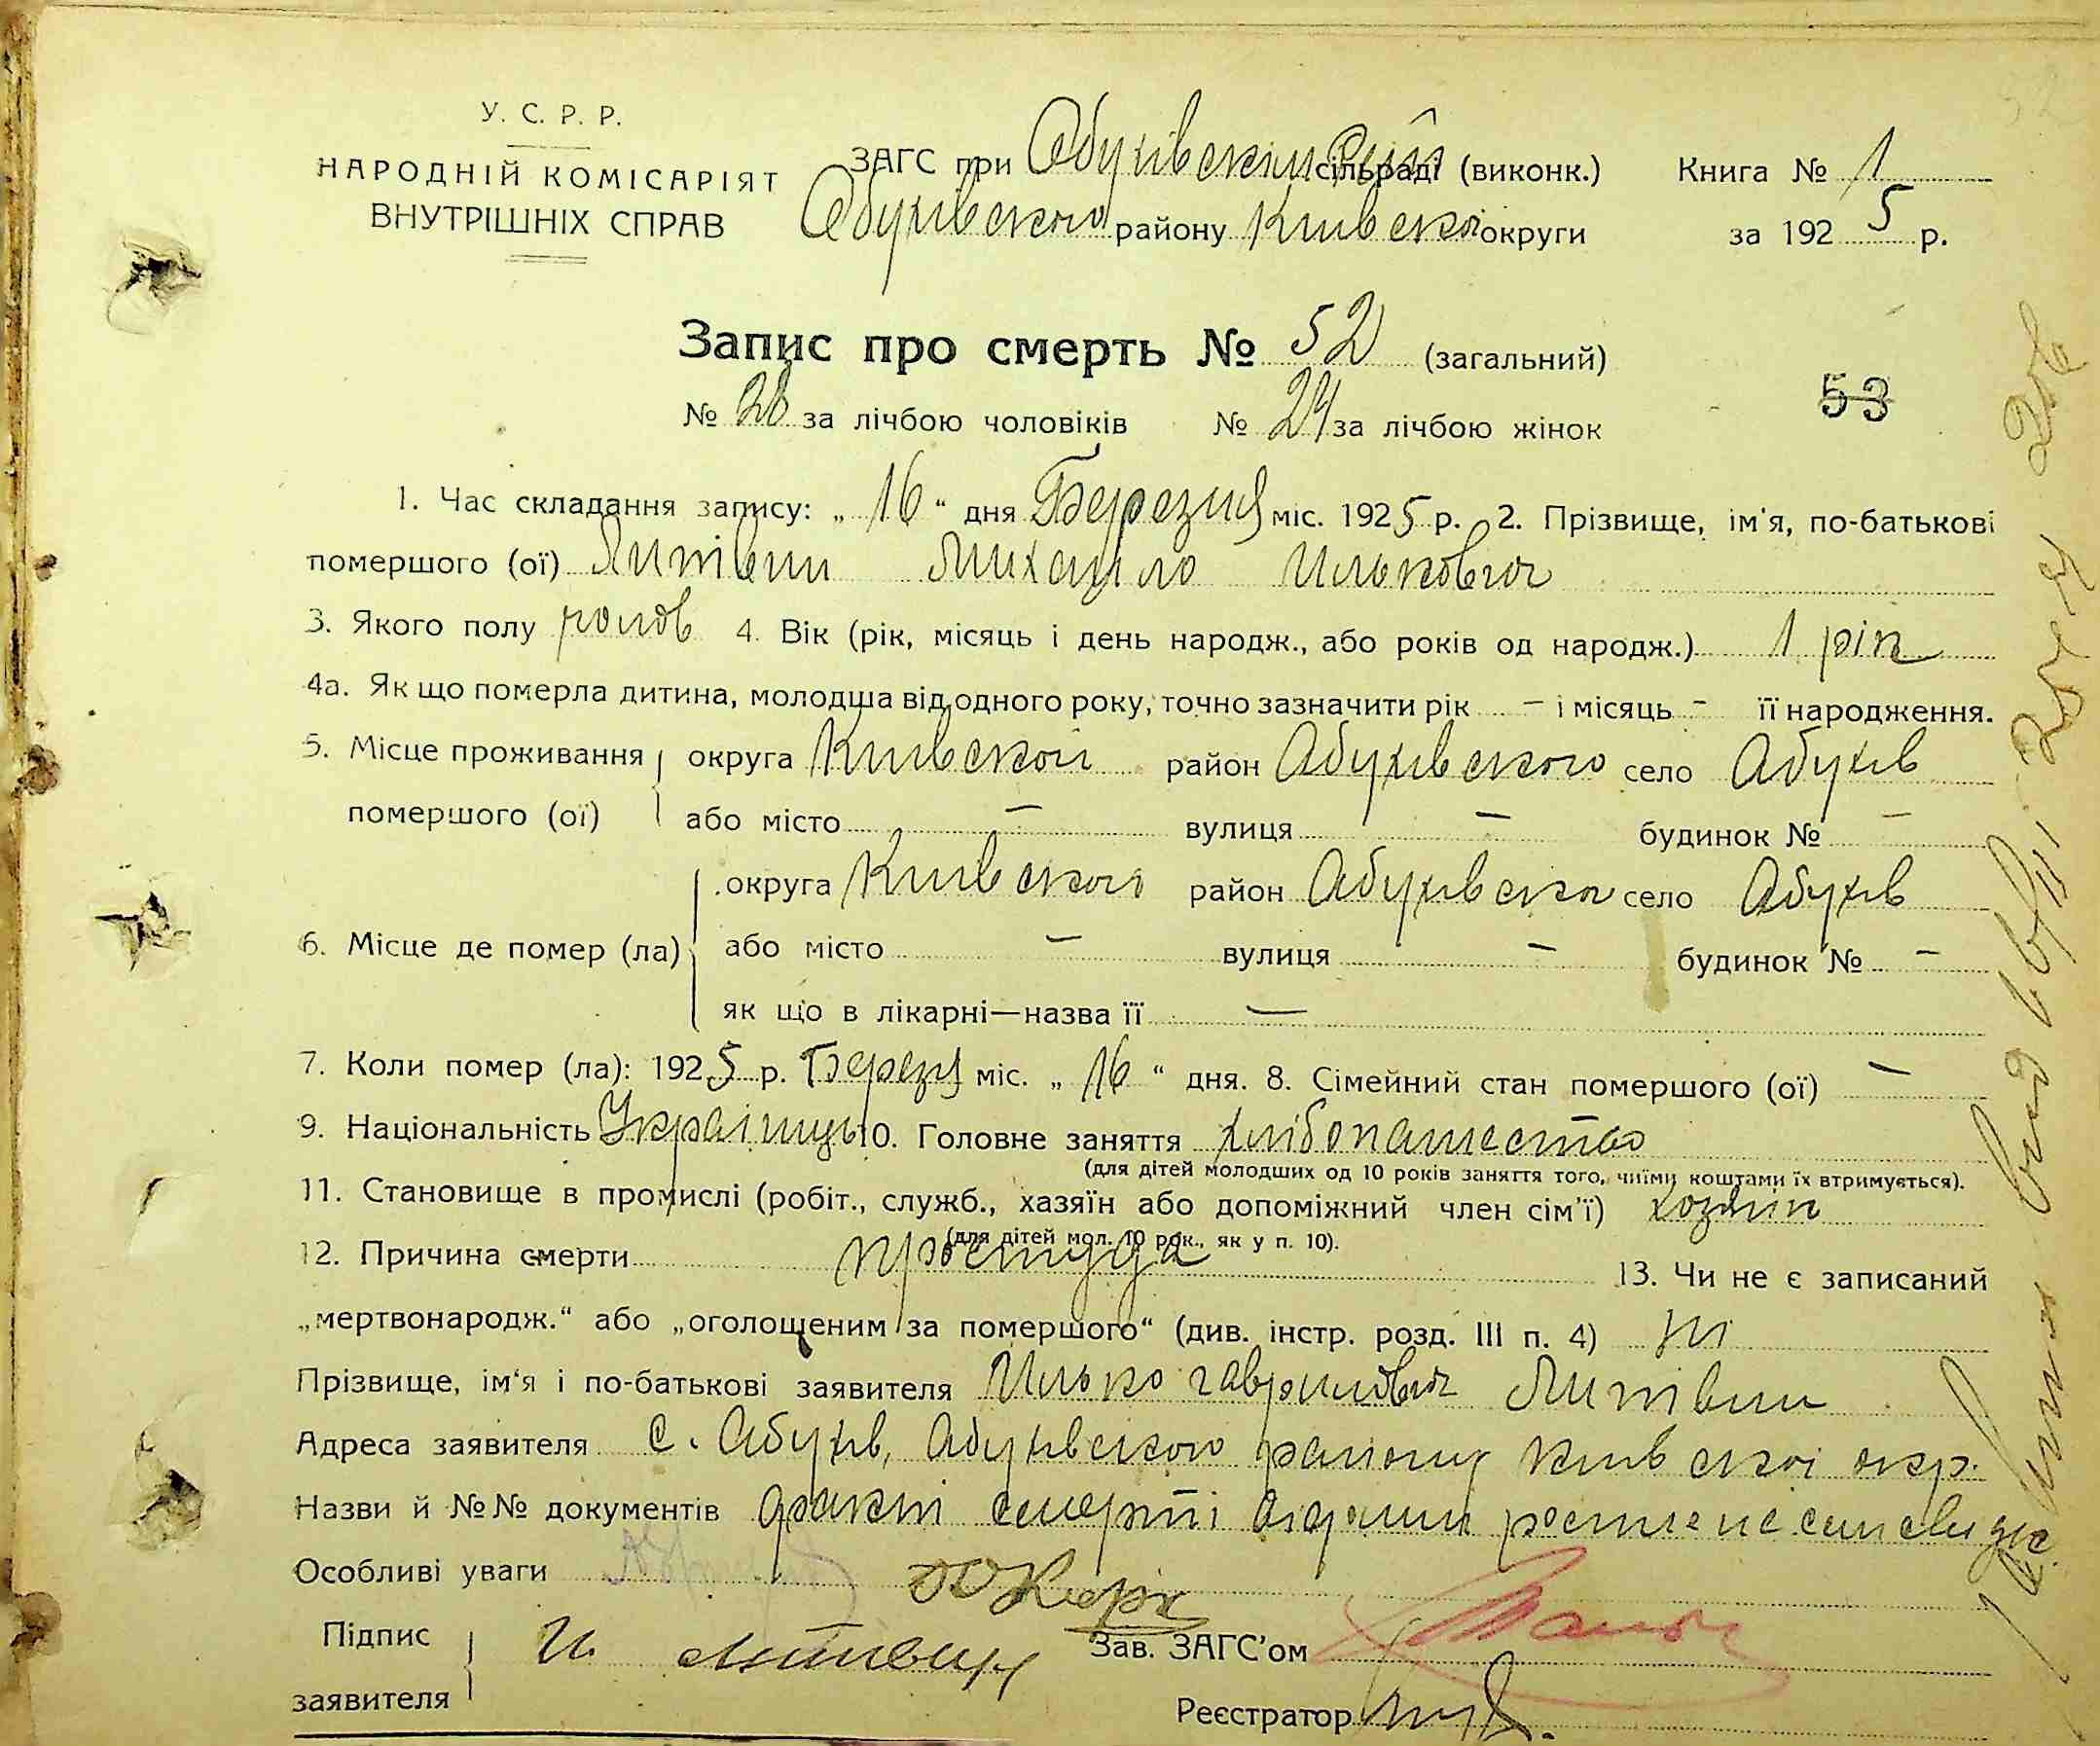 У. С. Р. Р.
НАРОДНІЙ КОМІСАРІЯТ
ВНУТРІШНІХ СПРАВ
ЗАГС при Обухівскім сільраді (виконк.) Книга № 1
Обухівского району Київскоі округи за 1925 р.
Запис про смерть № 52 (загальний)
№ 28 за лічбою чоловіків № 24 за лічбою жінок
53
1. Час складання запису: „ 16 “ дня Березня міс. 1925 р. 2. Прізвище, ім'я, по-батькові
помершого (ої) Литівин Михайло Илькович
3. Якого полу 4. Вік (рік, місяць і день народж., або років од народж.) 1 рік
4а. Як що померла дитина, молодша від одного року, точно зазначити рік – і місяць - її народження.
5. Місце проживання округа Київскоі район Абухівского село Абухів
помершого (ої) або місто — вулиця — будинок № —
округа Київскоі район Абухівско село Абухів
6. Місце де помер (ла) або місто – вулиця – будинок № –
як що в лікарні—назва її —
7. Коли помер (ла): 1925 р. Березня міс. „ 16 “ дня. 8. Сімейний стан помершого (ої) —
9. Національність Украінець 10. Головне заняття хлібопашество
(для дітей молодших од 10 років заняття того, чиїми коштами їх втримується).
11. Становище в промислі (робіт., служб., хазяїн або допоміжний член сім'ї) хозяін
(для дітей мол. 10 рок., як у п. 10).
12. Причина смерти простуда 13. Чи не є записаний
„мертвонародж.“ або „оголощеним за помершого“ (див. інстр. розд. III п. 4) ні
Прізвище, ім'я і по-батькові заявителя Илько гаврилович Литівин
Адреса заявителя С. Абухів, Абухівского району Київскоі окр.
Назви й №№ документів факт смерті
Особливі уваги
Підпис
заявителя И. Литвин
Зав. ЗАГС'ом
Реєстратор